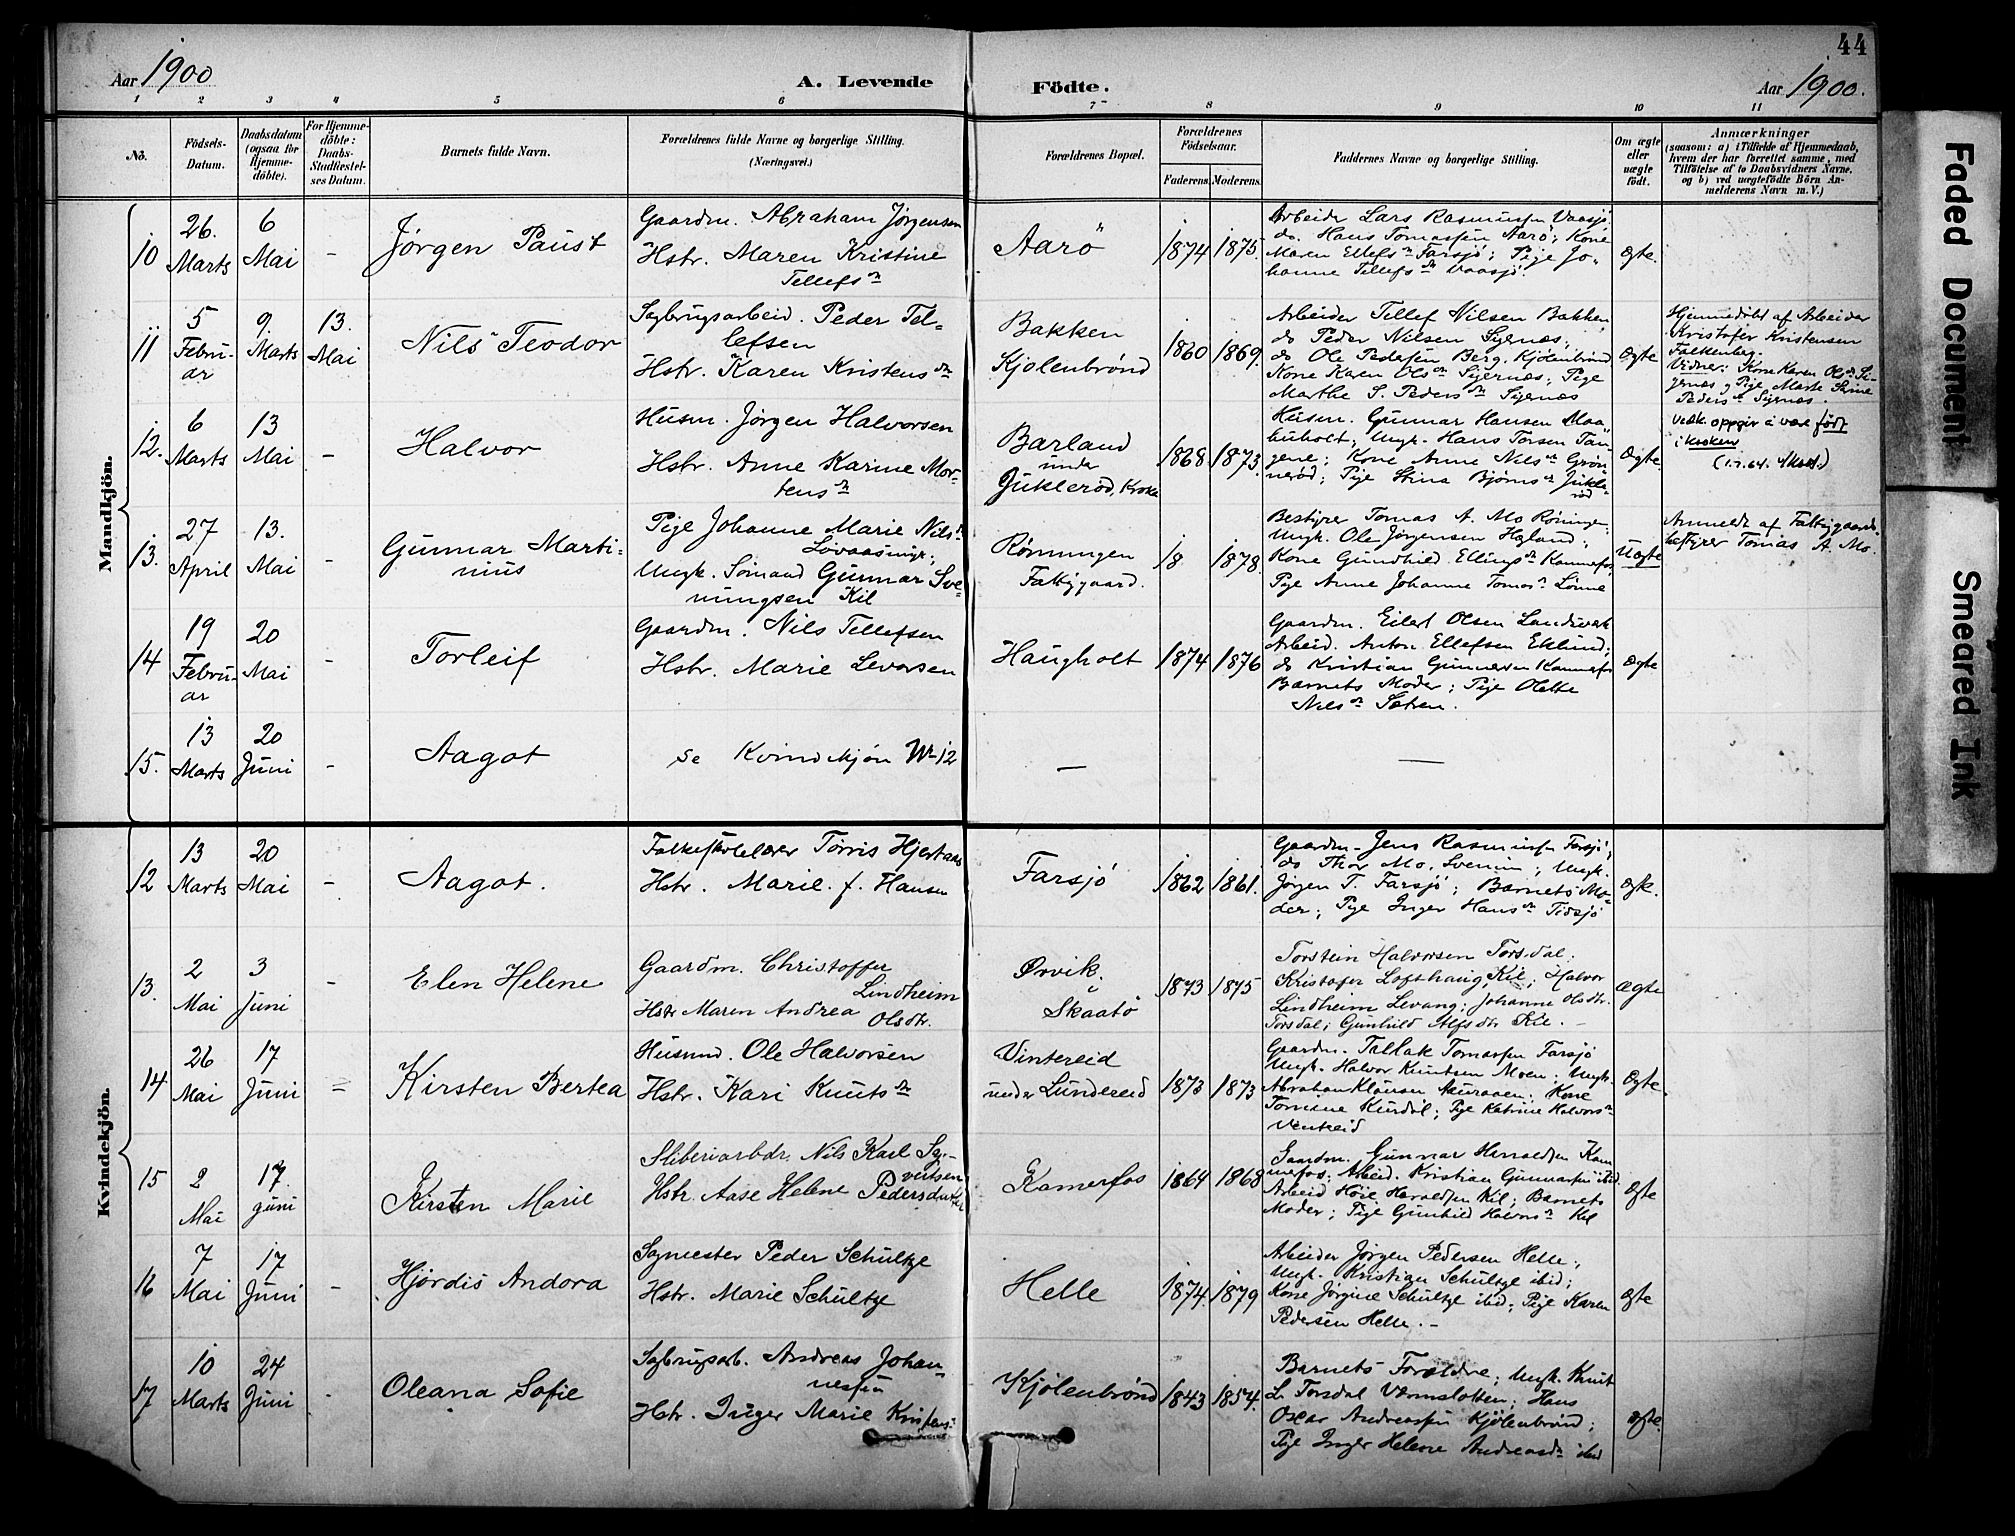 44
Aar 1900
A. Levende
Födte.
Aar 1900.
1 2 3 4 5 6 7 8 9 10 11
No.
Födsels-
Datum.
Daabsdatum
(ogsaa for
Hjemme-
döbte).
For Hjemme-
döbte:
Daabs-
Stadfæstel-
ses Datum.
Barnets fulde Navn.
Forældrenes fulde Navne og borgerlige Stilling.
(Næringsvei.)
Forældrenes Bopæl.
Forældrenes
Födselsaar.
Faderens. Moderens.
Faddernes Navne og borgerlige Stilling.
Om ægte
eller
uægte
født.
Anmærkninger
(saasom: a) i Tilfælde af Hjemmedaab,
hvem der har forrettet samme, med
Tilföielse af to Daabsvidners Navne,
og b) ved uægtefödte Börn An-
melderens Navn m. V.)
Mandkjön.
10
26.
Marts
6
Mai
-
Jørgen Paust
Gaardm. Abraham Jørgensen
Hstr. Maren Kristine
Tellefsdr
Aarö
1874
1875.
Arbeider Lars Rasmussen Vaasjö
do. Hans Tomassen Aarö; Kone
Maren Ellefsdr Farsjö; Pige Jo-
hanne Tellefsdr Vaasjö.
Ægte.
11
5
Febru-
ar
9
Marts
13.
Mai
Nils Teodor
Sagbrugsarbeid. Peder Tel-
lefsen
Hstr. Karen Kristensdr
Bakken
Kjølenbrønd
1860
1869.
Arbeider Tellef Nilsen Bakken
do Peder Nilsen Sjernæs;
do Ole Pedersen Berg, Kjölenbrönd
Kone Karen Olsdr Sijernæs; Pige
Marthe S. Pedersdr Sijernæs
Ægte
Hjemmedøbt af Arbeider
Kristofer Kristensen
Falkenberg.
Vidner: Kone Karen Olsdr Si-
jernæs og Pige Marte Serine
Pedersdr Sijernæs.
12.
6
Marts
13
Mai
-
Halvor
Husm. Jørgen Halvorsen
Hstr. Anne Karine Mor-
tensdr
Barland
under
Juklerød, Kroken
1868
1873.
Husm. Gunnar Hansen Maa-
buholt; Ungk. Hans Torsen Tan-
gene; Kone Anne Nilsdr Grön-
nerød; Pige Stina Bjørnsdr Jukle-
rød
Ægte
Vedk. oppgir å være født
i Kroken
13.
27
April
13.
Mai
-
Gunnar Marti-
nius
Pige Johanne Marie Nilsdr
Ungk. Sømand Gunnar Sve-
nungsen Kil
Rønningen
Fattiggaard.
18
1878.
Bestyrer Tomas A. Mo Röningen;
Ungk. Ole Jørgensen Høland;
Kone Gundhild Ellingsdr Kammefos;
Pige Anne Johanne Tomasdr Lønne
Uægte
Anmeldt af Fattiggaards-
bestyrer Tomas A. Mo.
14
19
Febru-
ar
20
Mai
-
Torleif
Gaardm. Nils Tellefsen
Hstr. Marie Levorsen
Haugholt
1874
1876
Gaardm. Eilert Olsen Landsverk
Arbeid. Anton Ellefsen Eklund;
do Kristian Gunnarsen Kammefos
Barnets Moder; Pige Olette
Nilsdr Sætren.
Ægte
15.
13
Marts
20
Juni
-
Aagot
se Kvindekjön No 12
—
—
Kvindekjön.
12
13
Marts
20
Mai
-
Aagot.
Folkeskolelærer Torris Hjertaas
Hstr. Marie f. Hansen
Farsjö
1862
1861.
Gaardm. Jens Rasmussen Farsjö;
do Thor Mo, Svenum; Ungk.
Jørgen T. Farsjö; Barnets Mo-
der; Pige Inger Hansdr Tidsjö
Ægte.
13.
2
Mai
3
Juni
-
Elen Helene
Gaardm. Christoffer
Lindheim
Hstr Maren Andrea
Olsdtr.
Ørvik
i
Skaatö
1873
1875
Torstein Halvorsen Torsdal;
Kristofer Lofthaug, Kil; Halvor
Lindheim Levang; Johanne Olsdtr.
Torsdal; Gunhild Alfsdtr Kil. -
Ægte
14
26
Mai
17
Juni
=
Kirsten Bertea
Husmd. Ole Halvorsen
Hstr. Kari Knutsdr
Vintereid
under Lundereid
1873
1873
Gaardm. Tallak Tomassen Farsjö
Ungk. Halvor Knutsen Moen; Ungk.
Abraham Klausen; Kone
Tomine Kurdöl; Pige Katrine Halvorsdr
Ventereid
Ægte
15
2
Mai
17.
Juni
Kirsten Marie
Sliberiarbdr. Nils Karl Sy-
vertsen
Hstr. Aase Helene Pedersdatter
Kamerfos
1864
1868
Gaardm. Gunnar Heraldsen Kam-
mefos; Arbeid. Kristian Gunnarsen ibid.
Arbeid Höie Heraldsen Kil; Barnets
Moder; Pige Gunhild Halvorsdr Kil
Ægte
16
7
Mai
17
Juni
-
Hjördis Andora
Sagmester Peder Schultze
Hstr. Marie Schultze
Helle
1874.
1879
Arbeider Jørgen Pedersen Helle;
Ungk. Kristian Schultze ibid;
Kone Jørgine Schultze ibid; Pige Karen
Pedersen Helle. -
Ægte
17
10
Marts
24
Juni
-
Oleana Sofie
Sagbrugsarb. Andreas Johan-
nessen
Hstr. Inger Marie Kristensdr
Kjölenbrönd
1843
1854.
Barnets Forældre; Ungk. Knut
L. Torsdal; Hans
Oscar Andreassen Kjölenbrönd;
Pige Inger Helene Andreasdr ibid
Ægte.
Faded Document
Smeared Ink